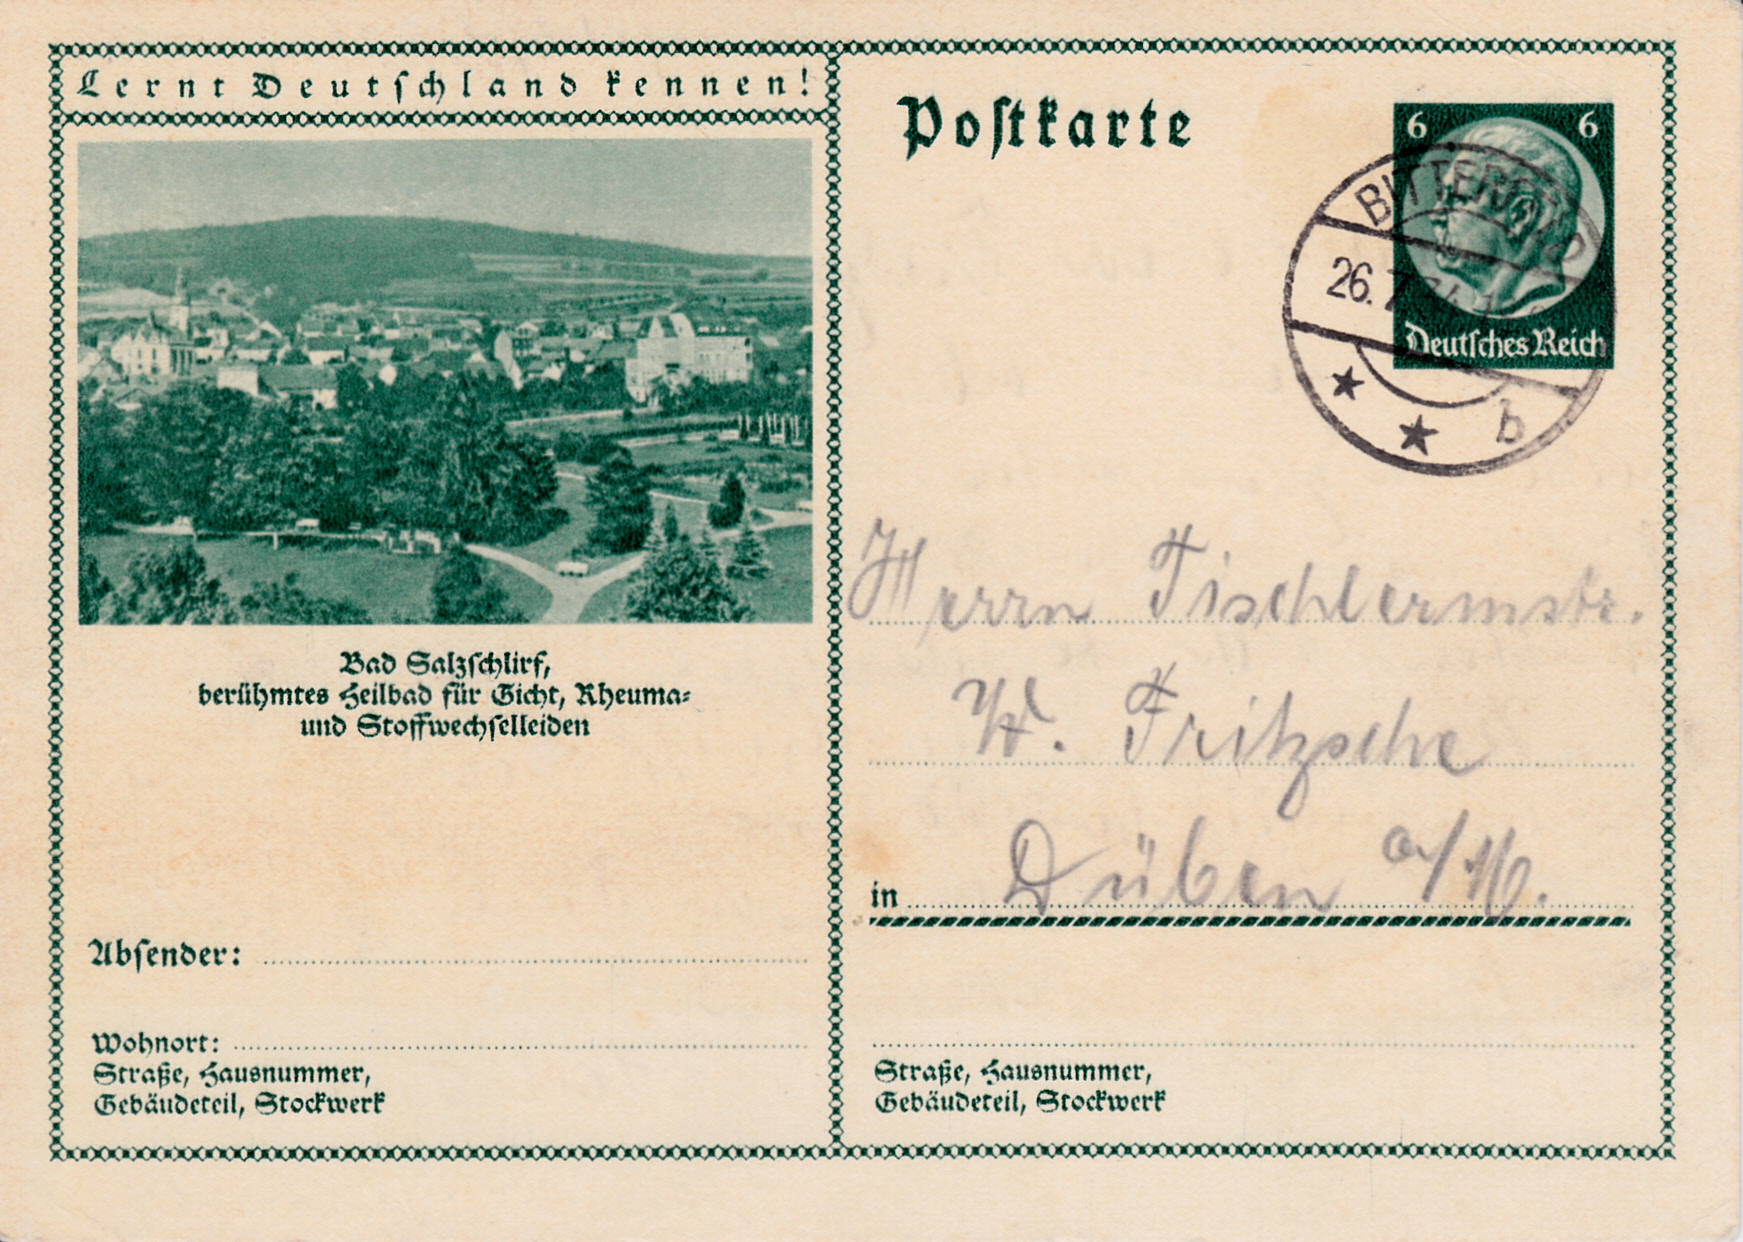 Lernt Deutschland kennen!
Bad Salzschlirf,
berühmtes Heilbad für Gicht, Rheuma-
und Stoffwechselleiden
Absender:
Wohnort:
Straße, Hausnummer,
Gebäudeteil, Stockwerk
Postkarte
6 6
Deutsches Reich
BITTERFELD
26.7.
b
Herrn Tischlermstr.
W. Fritzsche
in Düben a/M.
Straße, Hausnummer,
Gebäudeteil, Stockwerk